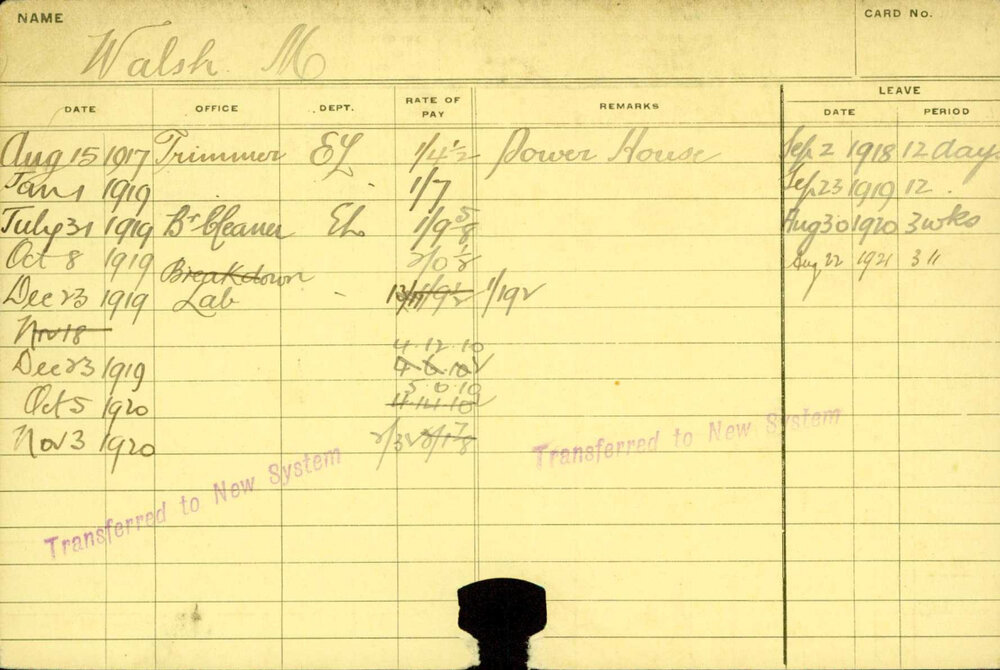 NAME
CARD No.
Walsh M
DATE OFFICE DEPT. RATE OF PAY REMARKS LEAVE
DATE PERIOD
Aug 15 1917 Trimmer EL 1/4½ Power House Sep 2 1918 12 days
Jan 1 1919 1/7 Sep 23 1919 12
July 31 1919 Br Cleaner EL 1/9⅝ Aug 30 1920 3 wks
Oct 8 1919 Breakdown 2/0⅛ Aug 22 1921 3 "
Dec 23 1919 Lab 1/9½
Nov 18
4 12 10
Dec 23 1919
5 0 10
Oct 5 1920 4 14 10
Nov 3 1920 2/3 2/1⅞
Transferred to New System
Transferred to New System